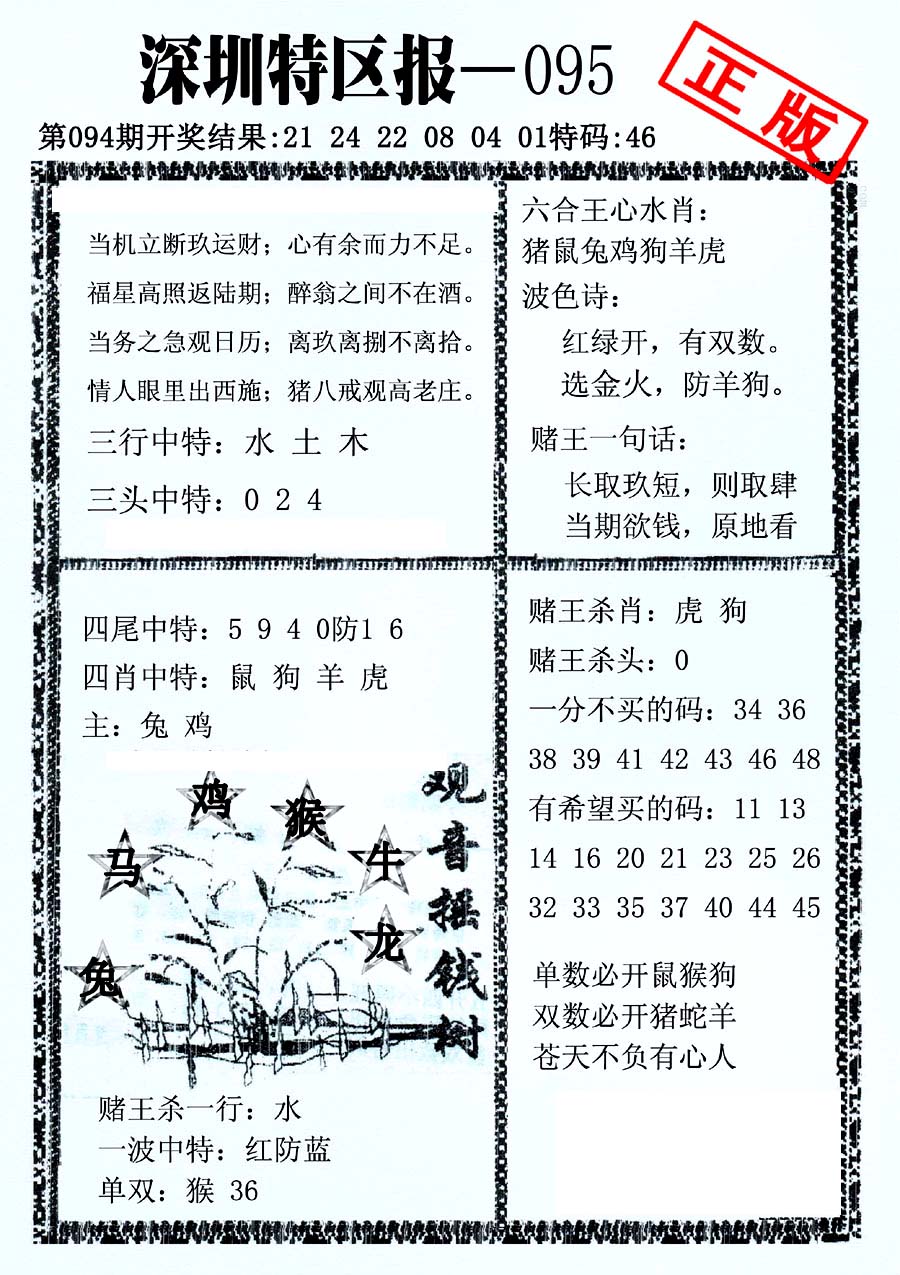 深圳特区报—095
正版
第094期开奖结果:21 24 22 08 04 01特码:46
当机立断玖运财；心有余而力不足。
福星高照返陆期；醉翁之间不在酒。
当务之急观日历；离玖离捌不离拾。
情人眼里出西施；猪八戒观高老庄。
三行中特：水 土 木
三头中特：0 2 4
六合王心水肖：
猪鼠兔鸡狗羊虎
波色诗：
红绿开，有双数。
选金火，防羊狗。
赌王一句话：
长取玖短，则取肆
当期欲钱，原地看
四尾中特：5 9 4 0防1 6
四肖中特：鼠 狗 羊 虎
主：兔 鸡
鸡
猴
马
牛
龙
兔
观音摇钱树
赌王杀一行：水
一波中特：红防蓝
单双：猴 36
赌王杀肖：虎 狗
赌王杀头：0
一分不买的码：34 36
38 39 41 42 43 46 48
有希望买的码：11 13
14 16 20 21 23 25 26
32 33 35 37 40 44 45
单数必开鼠猴狗
双数必开猪蛇羊
苍天不负有心人